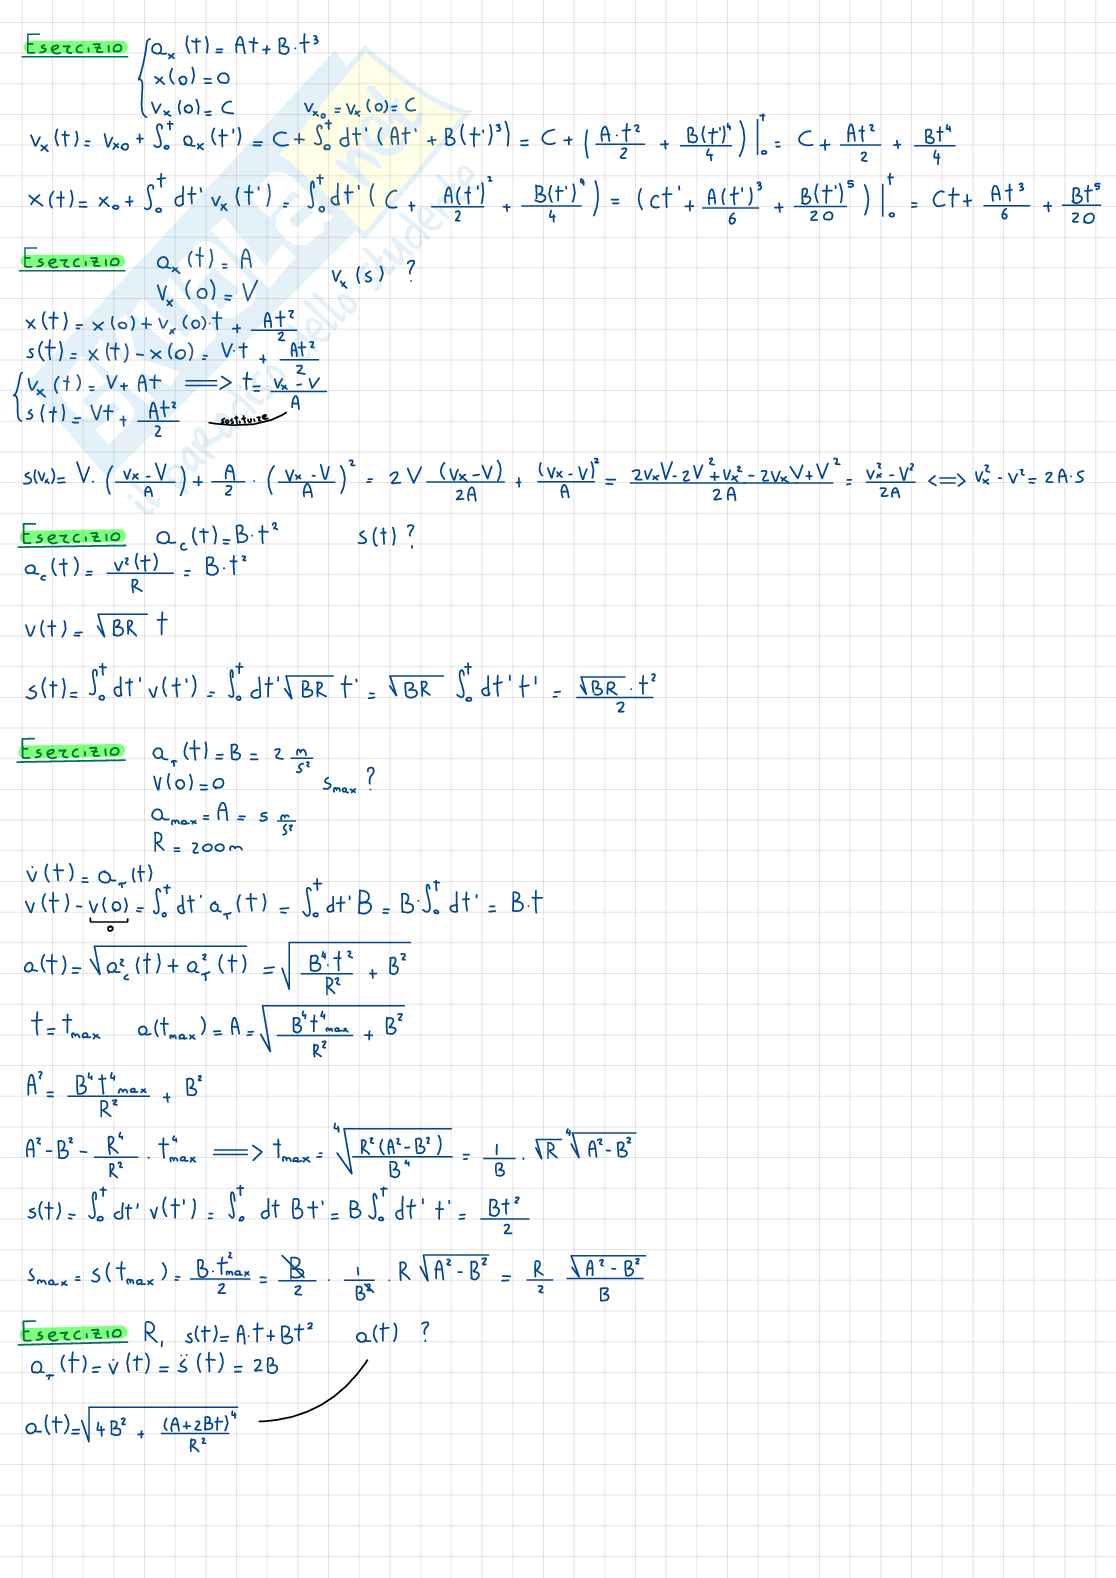 Esercizio { aₓ(t) = At + B·t³
x(0) = 0
vₓ(0) = C    vₓ₀ = vₓ(0) = C
vₓ(t) = vₓ₀ + ∫₀ᵗ aₓ(t') = C + ∫₀ᵗ dt' (At' + B(t')³) = C + (A·t²/2 + B(t')⁴/4)|₀ᵗ = C + At²/2 + Bt⁴/4
x(t) = x₀ + ∫₀ᵗ dt' vₓ(t') = ∫₀ᵗ dt' (C + A(t')²/2 + B(t')⁴/4) = (Ct' + A(t')³/6 + B(t')⁵/20)|₀ᵗ = Ct + At³/6 + Bt⁵/20
Esercizio aₓ(t) = A    vₓ(s) ?
vₓ(0) = V
x(t) = x(0) + vₓ(0)·t + At²/2
s(t) = x(t) - x(0) = V·t + At²/2
{ vₓ(t) = V + At ⟹ t = (vₓ - V)/A
s(t) = Vt + At²/2    sostituire
s(vₓ) = V·((vₓ - V)/A) + A/2·((vₓ - V)/A)² = 2V (vₓ - V)/2A + (vₓ - V)²/A = (2vₓV - 2V² + vₓ² - 2vₓV + V²)/2A = (vₓ² - V²)/2A ⟺ vₓ² - V² = 2A·s
Esercizio a_c(t) = B·t²    s(t) ?
a_c(t) = v²(t)/R = B·t²
v(t) = √BR t
s(t) = ∫₀ᵗ dt' v(t') = ∫₀ᵗ dt' √BR t' = √BR ∫₀ᵗ dt' t' = √BR·t²/2
Esercizio a_T(t) = B = 2 m/s²
v(0) = 0    s_max ?
a_max = A = 5 m/s²
R = 200m
v̇(t) = a_T(t)
v(t) - v(0) = ∫₀ᵗ dt' a_T(t) = ∫₀ᵗ dt' B = B·∫₀ᵗ dt' = B·t
0
a(t) = √(a_c²(t) + a_T²(t)) = √(B⁴·t²/R² + B²)
t = t_max    a(t_max) = A = √(B⁴t⁴_max/R² + B²)
A² = B⁴t⁴_max/R² + B²
A² - B² - R⁴/R² · t⁴_max ⟹ t_max = ⁴√(R²(A² - B²)/B⁴) = 1/B · √R ⁴√(A² - B²)
s(t) = ∫₀ᵗ dt' v(t') = ∫₀ᵗ dt Bt' = B ∫₀ᵗ dt' t' = Bt²/2
s_max = s(t_max) = B·t²_max/2 = B/2 · 1/B² · R √(A² - B²) = R/2 √(A² - B²)/B
Esercizio R, s(t) = A·t + Bt²    a(t) ?
a_T(t) = v̇(t) = s̈(t) = 2B
a(t) = √(4B² + (A + 2Bt)⁴/R²)